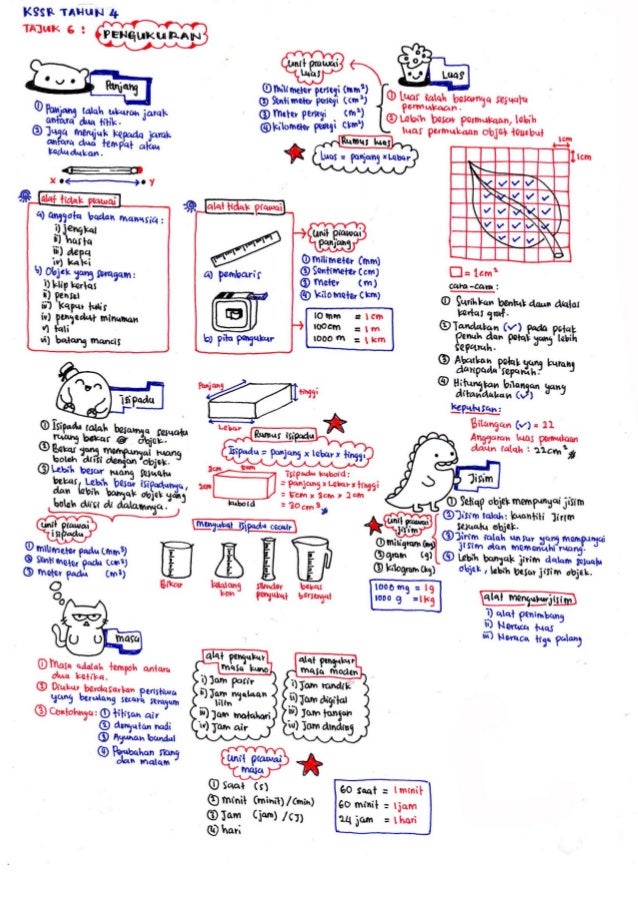 KSSR TAHUN 4
TAJUK 6 : PENGUKURAN
Panjang
① Panjang ialah ukuran jarak
antara dua titik.
② Juga merujuk kepada jarak
antara dua tempat atau
kedudukan.
x y
alat tidak piawai
a) anggota badan manusia :
i) jengkal
ii) hasta
iii) depa
iv) kaki
b) Objek yang seragam:
i) klip kertas
ii) pensel
iii) kapur tulis
iv) penyedut minuman
v) tali
vi) batang mancis
alat tidak piawai
a) pembaris
b) pita pengukur
unit piawai
panjang
① milimeter (mm)
② Sentimeter (cm)
③ meter (m)
④ kilometer (km)
10 mm = 1 cm
100 cm = 1 m
1000 m = 1 km
unit piawai
luas
① milimeter persegi (mm²)
② Sentimeter persegi (cm²)
③ meter persegi (m²)
④ kilometer persegi (km²)
Rumus luas
Luas = panjang x Lebar
Luas
① Luas ialah besarnya sesuatu
permukaan.
② Lebih besar permukaan, lebih
luas permukaan objek tersebut
1cm
1cm
= 1cm²
cara-cara :
① Surihkan bentuk daun diatas
kertas graf.
② Tandakan (✓) pada petak
penuh dan petak yang lebih
separuh.
③ Abaikan petak yang kurang
daripada separuh.
④ Hitungkan bilangan yang
ditandakan (✓)
keputusan:
Bilangan (✓) = 22
Anggaran luas permukaan
daun ialah : 22cm²
isipadu
① Isipadu ialah besarnya sesuatu
ruang bekas @ objek.
② Bekas yang mempunyai ruang
boleh diisi dengan objek.
③ Lebih besar ruang sesuatu
bekas, Lebih besar isipadunya,
dan lebih banyak objek yang
boleh diisi di dalamnya.
unit piawai
isipadu
① milimeter padu (mm³)
② Sentimeter padu (cm³)
③ meter padu (m³)
Panjang
tinggi
Lebar
Rumus isipadu
Isipadu = panjang x lebar x tinggi
3cm
5cm
2cm
kuboid
isipadu kuboid :
= panjang x Lebar x tinggi
= 5cm x 3cm x 2cm
= 30 cm³
mengukur isipadu cecair
Bikar
kelalang
kon
silinder
penyukat
bekas
bersenggat
Jisim
① Setiap objek mempunyai jisim
② Jisim ialah: kuantiti Jirim
sesuatu objek.
③ Jirim ialah unsur yang mempunyai
jisim dan memenuhi ruang.
④ Lebih banyak jirim dalam sesuatu
objek, lebih besar jisim objek.
unit piawai
jisim
① miligram (mg)
② gram (g)
③ kilogram (kg)
1000 mg = 1g
1000 g = 1kg
alat mengukur jisim
i) alat penimbang
ii) Neraca tuas
iii) Neraca tiga palang
masa
① Masa adalah tempoh antara
dua ketika.
② Diukur berdasarkan peristiwa
yang berulang secara seragam
③ Contohnya: ① titisan air
② denyutan nadi
③ Ayunan bandul
④ Perubahan siang
dan malam
alat pengukur
masa kuno
i) Jam pasir
ii) Jam nyalaan
lilin
iii) Jam matahari
iv) Jam air
alat pengukur
masa moden
i) Jam randik
ii) Jam digital
iii) Jam tangan
iv) Jam dinding
unit piawai
masa
① Saat (s)
② minit (minit) / (min)
③ Jam (jam) / (J)
④ hari
60 saat = 1 minit
60 minit = 1 jam
24 jam = 1 hari